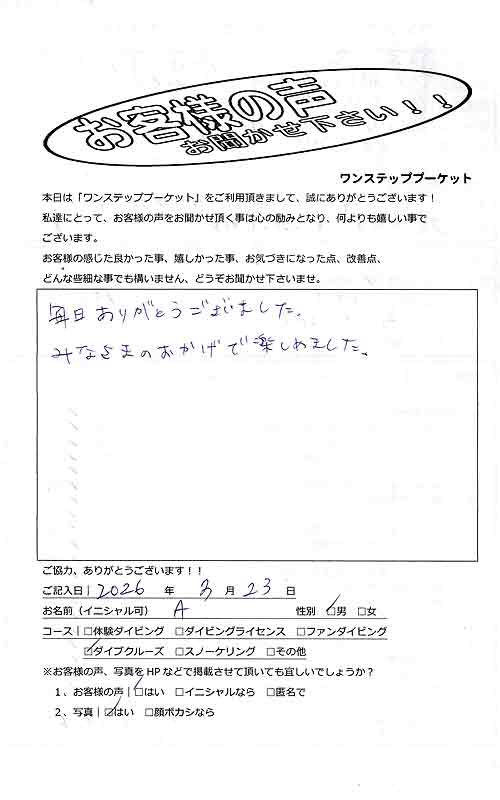 お客様の声
お聞かせ下さい！！
ワンステッププーケット
本日は「ワンステッププーケット」をご利用頂きまして、誠にありがとうございます！
私達にとって、お客様の声をお聞かせ頂く事は心の励みとなり、何よりも嬉しい事で
ございます。
お客様の感じた良かった事、嬉しかった事、お気づきになった点、改善点、
どんな些細な事でも構いません、どうぞお聞かせ下さいませ。
毎日ありがとうございました。
みなさまのおかげで楽しめました。
ご協力、ありがとうございます！！
ご記入日| 2026 年 3 月 23 日
お名前（イニシャル可） A 性別 □男 □女
コース| □体験ダイビング □ダイビングライセンス □ファンダイビング
□ダイブクルーズ □スノーケリング □その他
※お客様の声、写真を HP などで掲載させて頂いても宜しいでしょうか？
1、お客様の声| □はい □イニシャルなら □匿名で
2、写真| □はい □顔ボカシなら